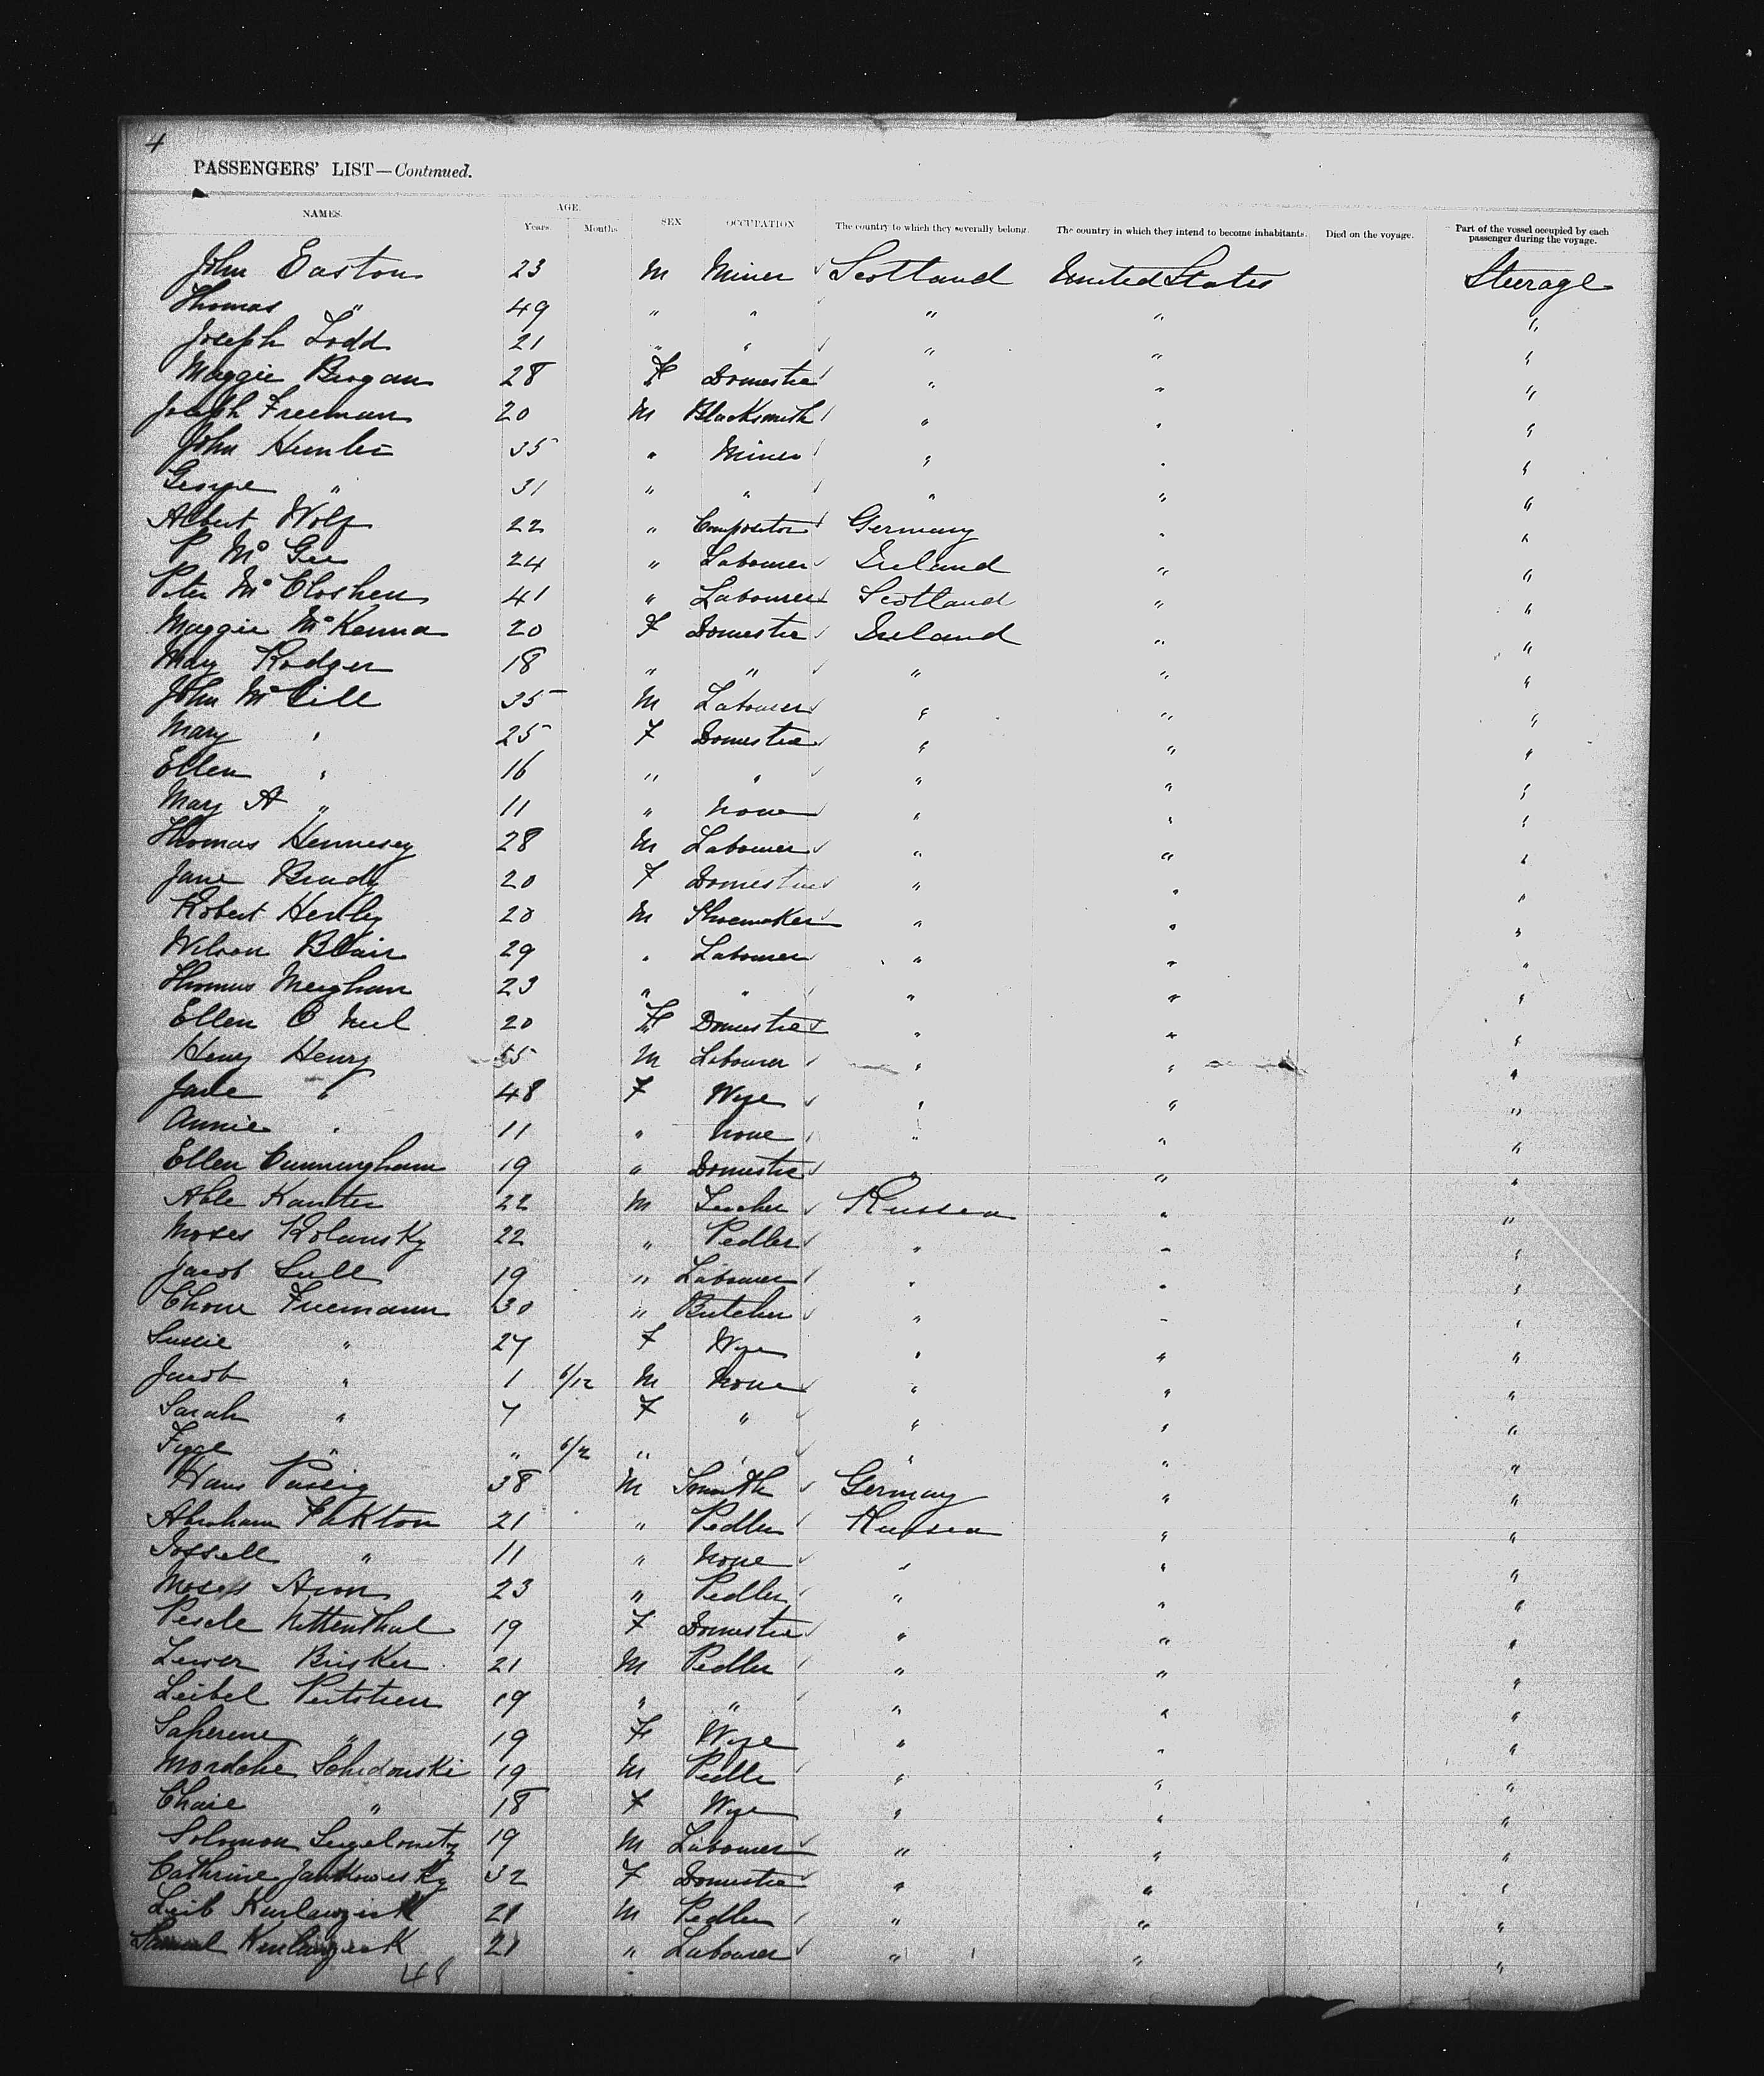 4
PASSENGERS' LIST—Continued.
NAMES. AGE. Years. Months. SEX OCCUPATION The country to which they severally belong. The country in which they intend to become inhabitants. Died on the voyage. Part of the vessel occupied by each passenger during the voyage.
John Easton 23 M Miner Scotland United States Steerage
Thomas " 49 " " " " "
Joseph Todd 21 " " " " "
Maggie Brogan 28 F Domestic " " "
Joseph Freeman 20 M Blacksmith " " "
John Hunter 35 " Miner " " "
George " 31 " " " " "
Albert Wolf 22 " Compositor Germany " "
P McGee 24 " Labourer Ireland " "
Peter McCloshen 41 " Labourer Scotland " "
Maggie McKenna 20 F Domestic Ireland " "
May Rodger 18 " " " " "
John McGill 35 M Labourer " " "
Mary " 25 F Domestic " " "
Ellen " 16 " " " " "
Mary A " 11 " None " " "
Thomas Hennesey 28 M Labourer " " "
Jane Brady 20 F Domestic " " "
Robert Henley 20 M Shoemaker " " "
Wilson Blair 29 " Labourer " " "
Thomas Meighan 23 " " " " "
Ellen O Neil 20 F Domestic " " "
Henry Henry 55 M Labourer " " "
Jane " 48 F Wife " " "
Annie " 11 " None " " "
Ellen Cunningham 19 " Domestic " " "
Able Kanter 22 M Russia " "
Moses Rolansky 22 " Pedler " " "
Jacob 19 " Labourer " " "
Chone Freemann 30 " Butcher " " "
Sussie " 27 F Wife " " "
Jacob " 1 6/12 M None " " "
Sarah " 7 F " " " "
Fige " " 6/12 " " " " "
Hans Passig 38 M Smith Germany " "
Abraham Fakton 21 " Pedler Russia " "
Jossell " 11 " None " " "
Moses Aron 23 " Pedler " " "
Pesele Nittenthal 19 F Domestic " " "
Leiser Brisker 21 M Pedler " " "
Leibel 19 " " " " "
" 19 F Wife " " "
Mordche Schidonski 19 M Pedler " " "
Chaie " 18 F Wife " " "
Solomon 19 M Labourer " " "
Cathrine Jankowesky 32 F Domestic " " "
Leib 21 M Pedler " " "
Samuel 21 " Labourer " " "
48